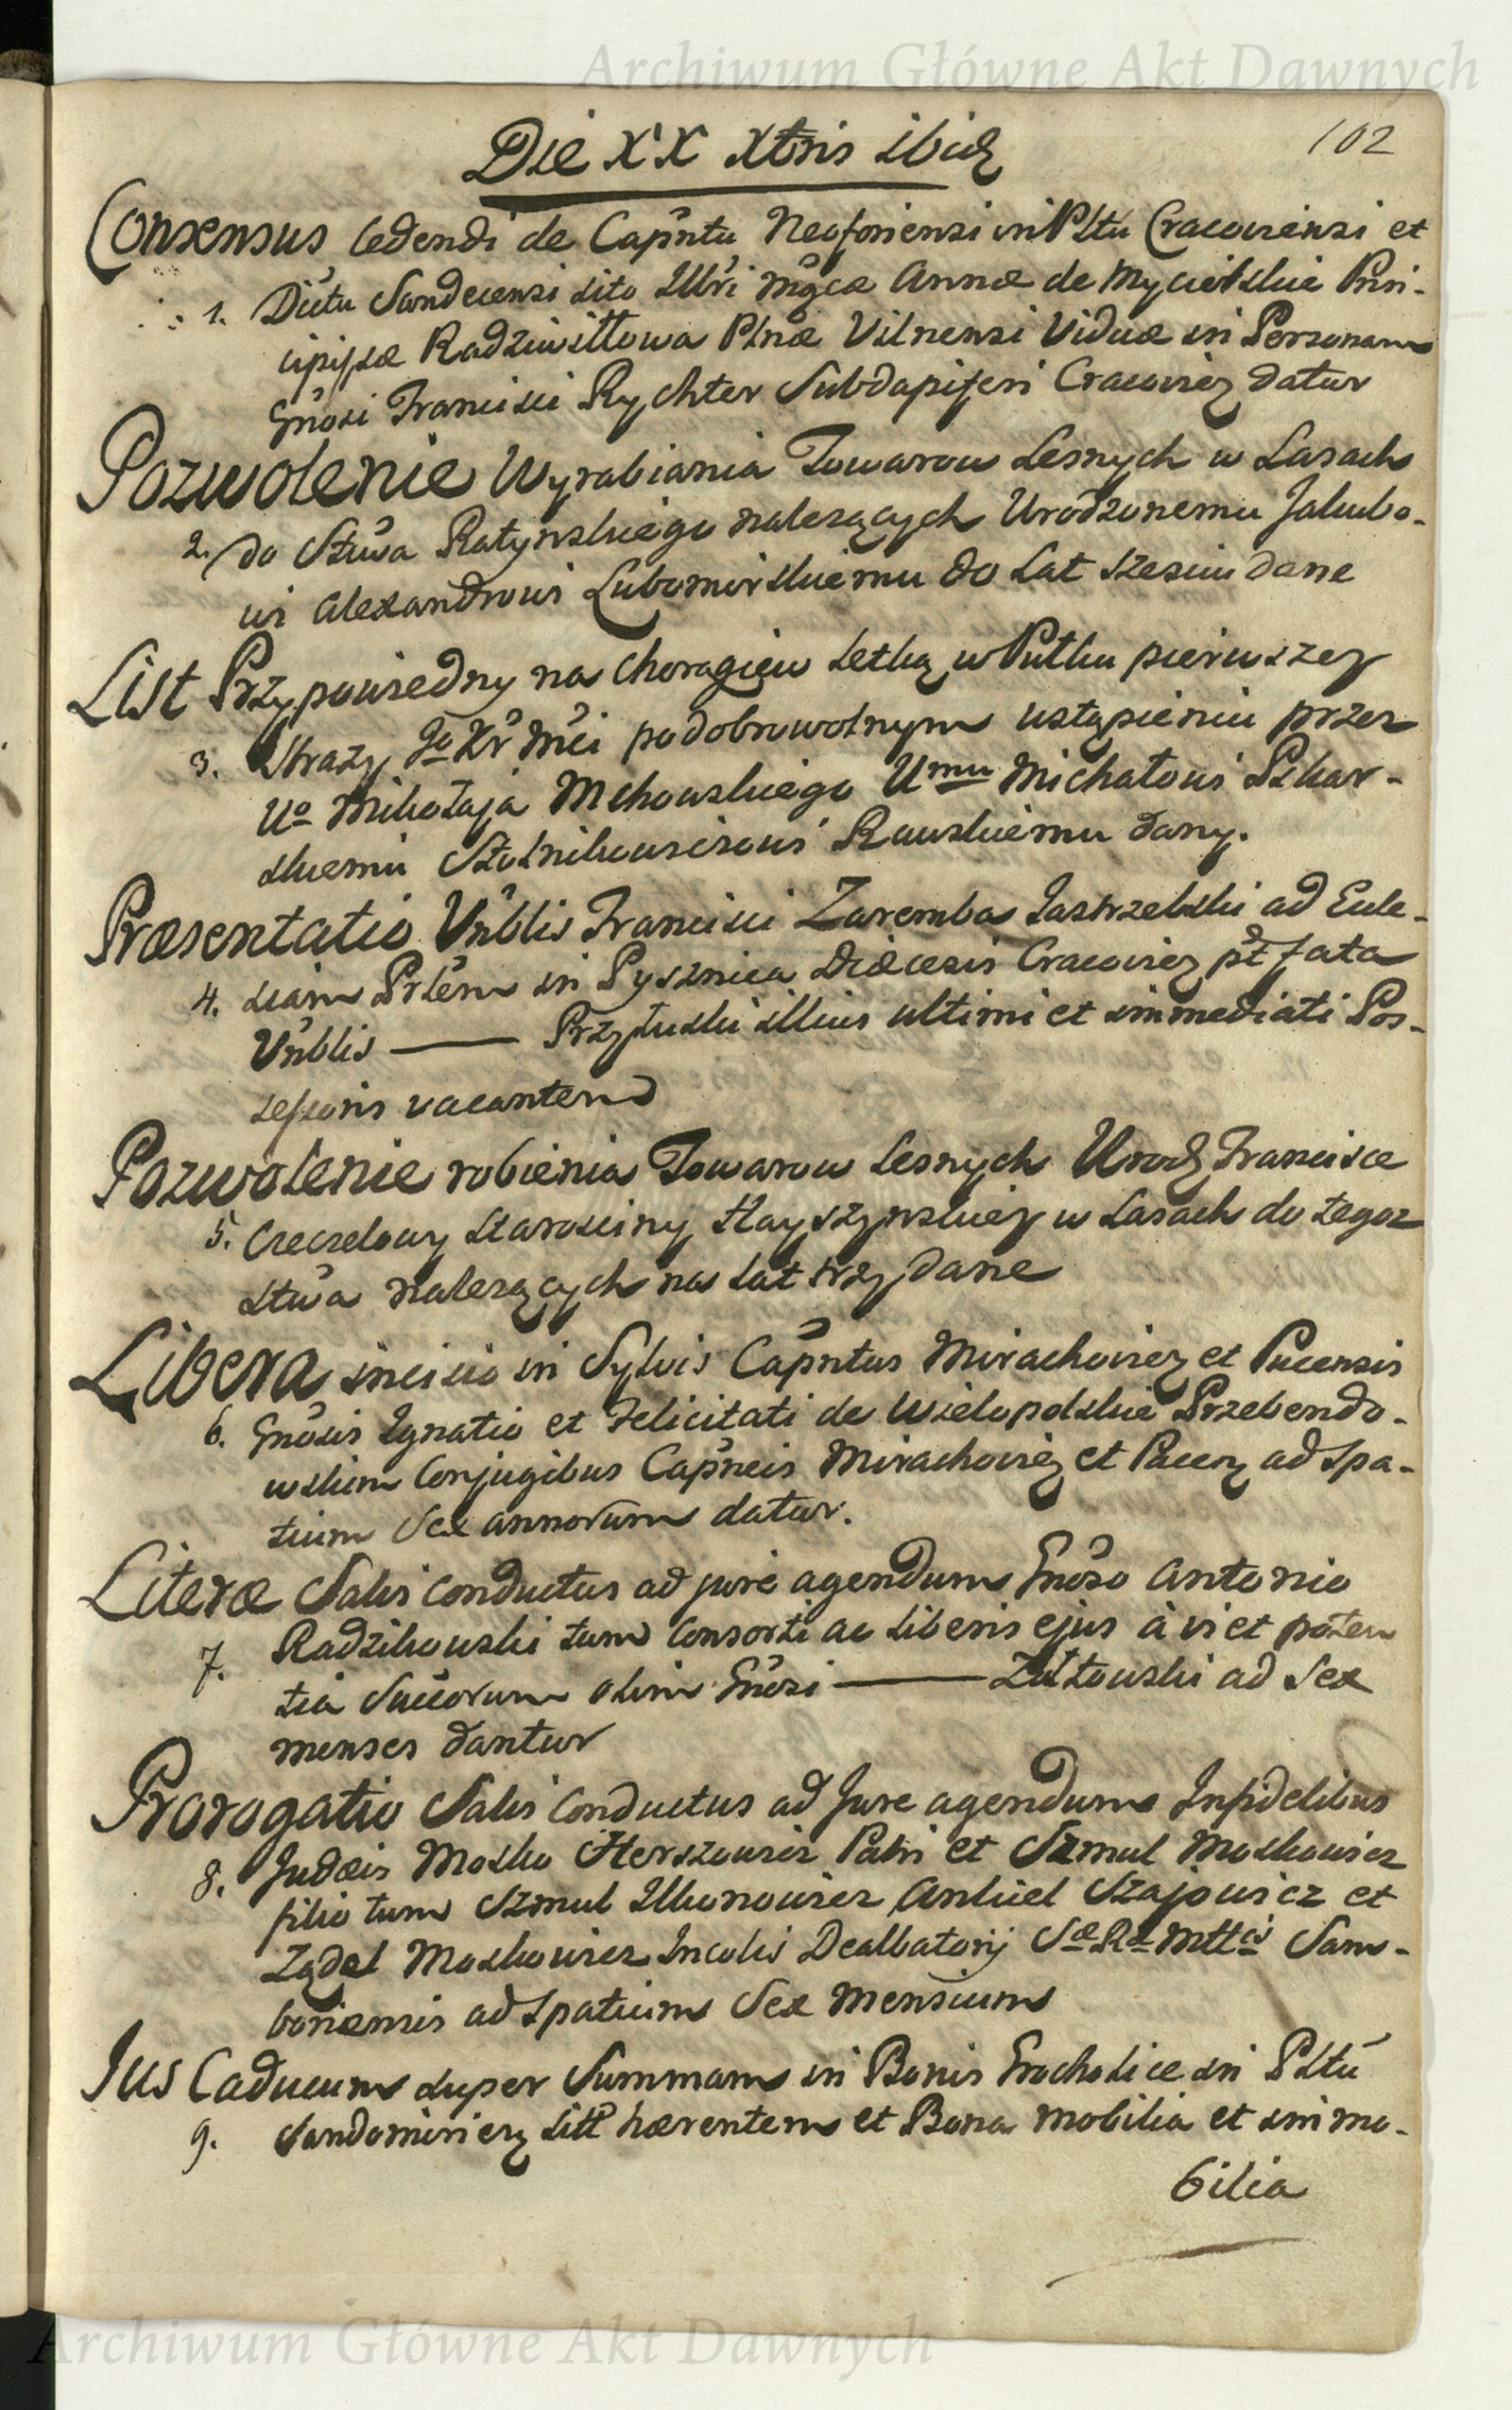 Archiwum Główne Akt Dawnych
102
Die XX Xbris ibid
Consensus cedendi de Capntu Neoforiensi in Pltu Cracoviensi et
1. Dictu Sandecensi sito Illri Mgcæ Annæ de Mycielskie Prin-
cipissæ Radziwiłłowa Plnæ Vilnensi Viduæ in Personam
Gnosi Francisci Rychter Subdapiferi Cracovien datur
Pozwolenie Wyrabiania Towarow Lesnych w Lasach
2. do Stwa Ratynskiego nalezących Urodzonemu Jakubo-
wi Alexandrowi Lubomirskiemu do Lat szesciu dane
List Przypowiedny na Choragiew Letką w Pułku pierwszey
3. Strazy Jo Kr Mci po dobrowolnym ustąpieniu przez
Uo Mikołaja Mchowskiego Umu Michałowi Pekar-
skiemu Stolnikowiczowi Rawskiemu dany.
Præsentatio Vnblis Francisci Zaremba Jastrzebski ad Eccle-
4. siam Prlem in Pysznica Diæcesis Cracovien pt fata
Vnblis ——— Przyłuski illius ultimi et immediati Pos-
sessoris vacantem
Pozwolenie robienia Towarow Lesnych Urod Francisce
5. Czeczelowy Starosciny Hayszynskiey w Lasach do tegoz
stwa nalezących na lat trzy dane
Libera incisio in Sylvis Capntus Mirachovien et Pucensis
6. Gnosis Ignatio et Felicitati de Wielopolskie Przebendo-
wskim Conjugibus Capneis Mirachovien et Pucen ad spa-
tium Sex annorum datur.
Literæ Salvi Conductus ad jure agendum Gnoso Antonio
7. Radzikowski tum Consorti ac liberis ejus à vi et poten
tia Succorum olim Gnosi ——— Zółtowski ad Sex
menses dantur
Prorogatio Salvi Conductus ad Jure agendum Infidelibus
8. Judæis Mosko Herszowicz Patri et Szmul Moskowicz
filio tum Szmul Ilkonowicz Ankiel Szajowicz et
Ządel Moskowicz Incolis Dealbatorij Sæ Ræ Mttis Sam-
boriensis ad Spatium Sex Mensium
Jus Caducum super Summam in Bonis Grocholice in Pltu
9. Sandomirien sitt hærentem et Bona mobilia et immo-
bilia
Archiwum Główne Akt Dawnych